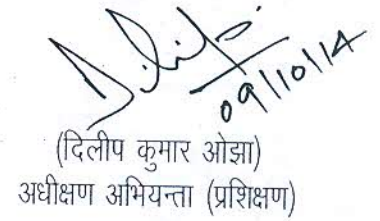 Dilip
09/10/14
(दिलीप कुमार ओझा)
अधीक्षण अभियन्ता (प्रशिक्षण)